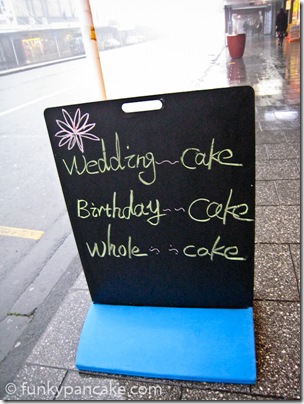 Wedding ~~ cake
Birthday ~~ cake
Whole ~ ~ cake
© funkypancake.com